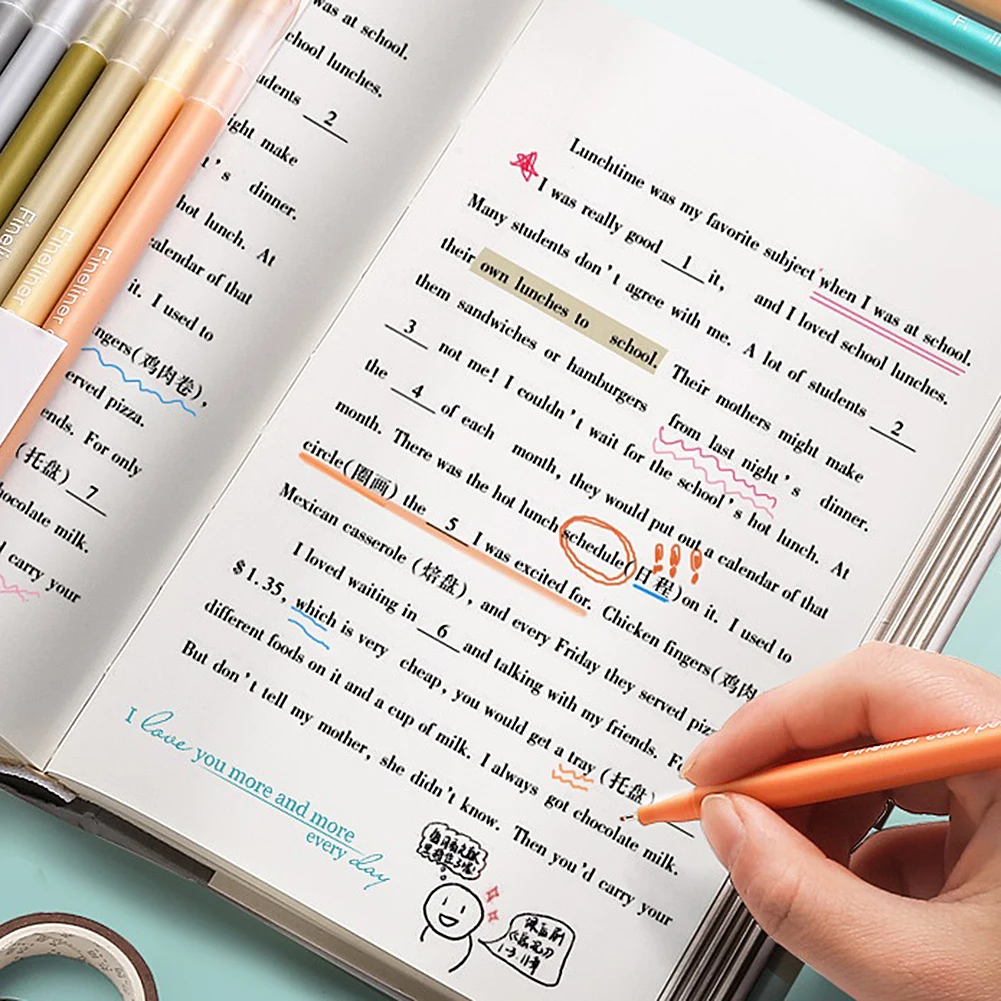 was at school.
chool lunches.
udents 2
ight make
t's dinner.
hot lunch. At
alendar of that
it. I used to
ingers(鸡肉卷),
erved pizza.
ends. For only
(托盘) 7
ocolate milk.
carry your
Fineliner
Fineliner
Fineliner
Lunchtime was my favorite subject when I was at school.
I was really good 1 it, and I loved school lunches.
Many students don't agree with me. A lot of students 2
their own lunches to school. Their mothers might make
them sandwiches or hamburgers from last night's dinner.
3 not me! I couldn't wait for the school's hot lunch. At
the 4 of each month, they would put out a calendar of that
month. There was the hot lunch schedule(日程)on it. I used to
circle(圈画) the 5 I was excited for. Chicken fingers(鸡肉
Mexican casserole (焙盘), and every Friday they served pizz
I loved waiting in 6 and talking with my friends. F
$1.35, which is very cheap, you would get a tray (托盘)
different foods on it and a cup of milk. I always got chocolate milk.
But don't tell my mother, she didn't know. Then you'd carry your
I love you more and more
every day
Fineliner color pe